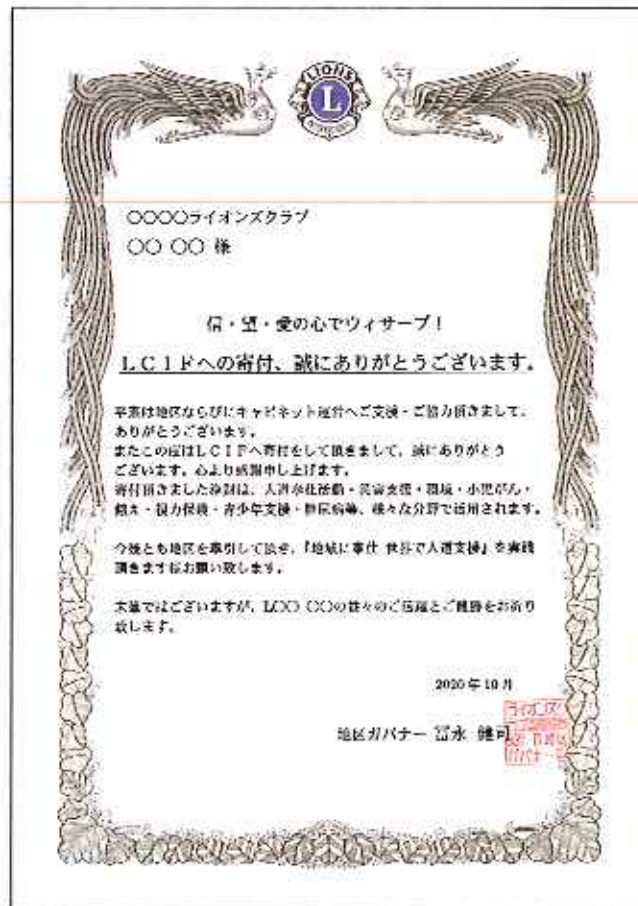 LIONS
L
〇〇〇〇ライオンズクラブ
〇〇 〇〇 様
信・望・愛の心でウィサーブ！
LCIFへの寄付、誠にありがとうございます。
平素は地区ならびにキャビネット運営へご支援・ご協力頂きまして、
ありがとうございます。
またこの度はLCIFへ寄付をして頂きまして、誠にありがとう
ございます。心より感謝申し上げます。
寄付頂きました浄財は、人道奉仕活動・災害支援・環境・小児がん・
飢え・視力保護・青少年支援・糖尿病等、様々な分野で活用されます。
今後とも地区を牽引して頂き、『地域に奉仕 世界で人道支援』を実践
頂きます様お願い致します。
末筆ではございますが、L〇〇 〇〇の益々のご活躍とご健勝をお祈り
致します。
2020年10月
地区ガバナー 冨永 健司
ライオンズ
ガバナー